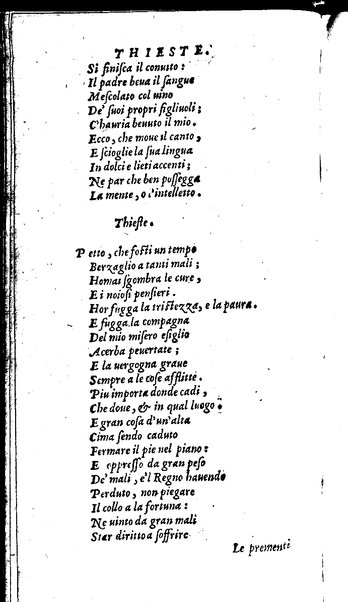 THIESTE.
Si finisca il conuito:
Il padre beua il sangue
Mescolato col uino
De' suoi propri figliuoli;
C'hauria beuuto il mio.
Ecco, che moue il canto,
E scioglie la sua lingua
In dolci e lieti accenti;
Ne par che ben possegga
La mente, o l'intelletto.
Thieste.
Petto, che fosti un tempo
Berzaglio a tanti mali;
Homai sgombra le cure,
E i noiosi pensieri.
Hor fugga la tristezza, e la paura.
E fugga la compagna
Del mio misero esiglio
Acerba peuertate;
E la uergogna graue
Sempre a le cose afflitte.
Piu importa donde cadi,
Che doue, & in qual luogo.
E gran cosa d'un'alta
Cima sendo caduto
Fermare il pie nel piano:
E oppresso da gran peso
De' mali, e'l Regno hauendo
Perduto, non piegare
Il collo a la fortuna:
Ne uinto da gran mali
Star diritto a soffrire
Le prementi